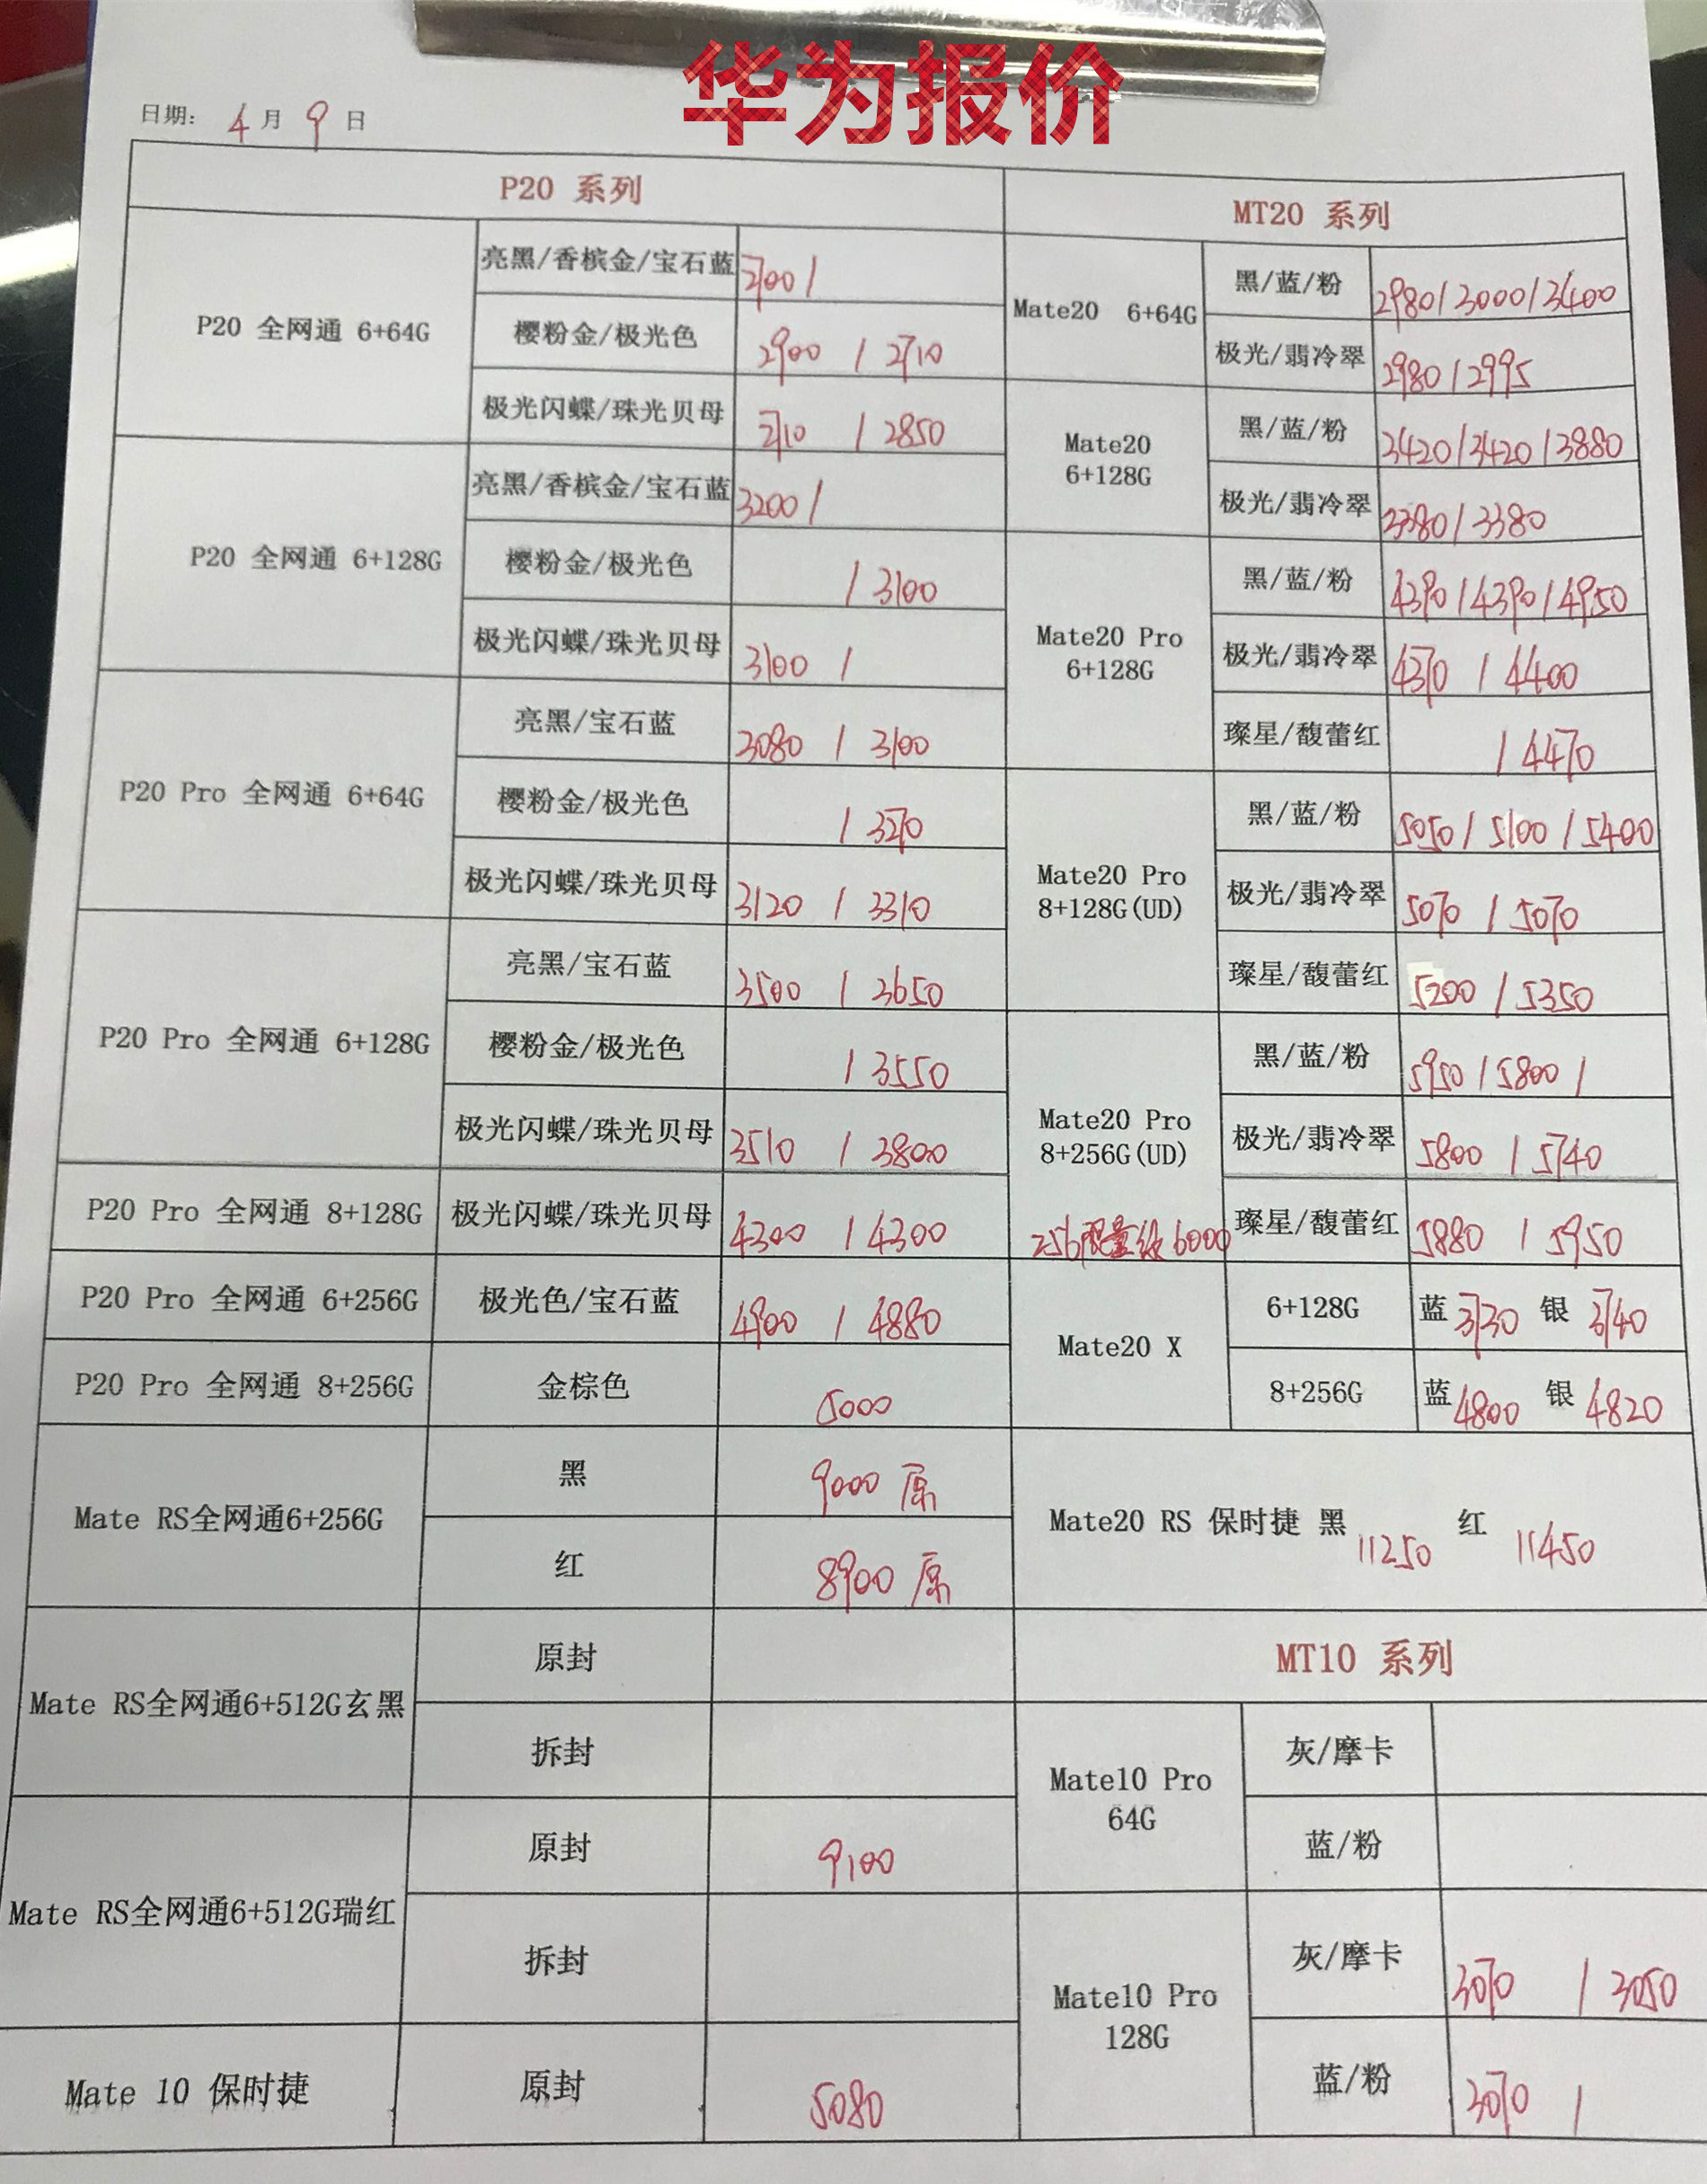 华为报价
日期: 4 月 9 日
P20 系列
P20 全网通 6+64G
亮黑/香槟金/宝石蓝 2700 /
樱粉金/极光色 2900 / 2710
极光闪蝶/珠光贝母 2710 / 2850
P20 全网通 6+128G
亮黑/香槟金/宝石蓝 3200 /
樱粉金/极光色 / 3100
极光闪蝶/珠光贝母 3100 /
P20 Pro 全网通 6+64G
亮黑/宝石蓝 3080 / 3100
樱粉金/极光色 / 3270
极光闪蝶/珠光贝母 3120 / 3310
P20 Pro 全网通 6+128G
亮黑/宝石蓝 3500 / 3650
樱粉金/极光色 / 3550
极光闪蝶/珠光贝母 3510 / 3800
P20 Pro 全网通 8+128G 极光闪蝶/珠光贝母 4300 / 4300
P20 Pro 全网通 6+256G 极光色/宝石蓝 4900 / 4880
P20 Pro 全网通 8+256G 金棕色 5000
Mate RS全网通6+256G
黑 9000 原
红 8900 原
Mate RS全网通6+512G玄黑
原封
拆封
Mate RS全网通6+512G瑞红
原封 9100
拆封
Mate 10 保时捷 原封 5080
MT20 系列
Mate20 6+64G
黑/蓝/粉 2980/3000/3400
极光/翡冷翠 2980/2995
Mate20
6+128G
黑/蓝/粉 3420/3420/3880
极光/翡冷翠 3380/3380
Mate20 Pro
6+128G
黑/蓝/粉 4390/4390/4950
极光/翡冷翠 4370 / 4400
璨星/馥蕾红 / 4470
Mate20 Pro
8+128G(UD)
黑/蓝/粉 5050/5100/5400
极光/翡冷翠 5070 / 5070
璨星/馥蕾红 5200 / 5350
Mate20 Pro
8+256G(UD)
256限量版 6000
黑/蓝/粉 5950/5800/
极光/翡冷翠 5800 / 5740
璨星/馥蕾红 5880 / 5950
Mate20 X
6+128G 蓝 3730 银 3740
8+256G 蓝 4800 银 4820
Mate20 RS 保时捷 黑 11250 红 11450
MT10 系列
Mate10 Pro
64G
灰/摩卡
蓝/粉
Mate10 Pro
128G
灰/摩卡 3070 / 3050
蓝/粉 3070 /